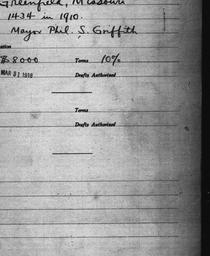 Greenfield, Missouri
1434 in 1910.
Mayor Phil. S. Griffith
$8000 Terms 10%
MAR 31 1916 Drafts Authorized
Terms
Drafts Authorized